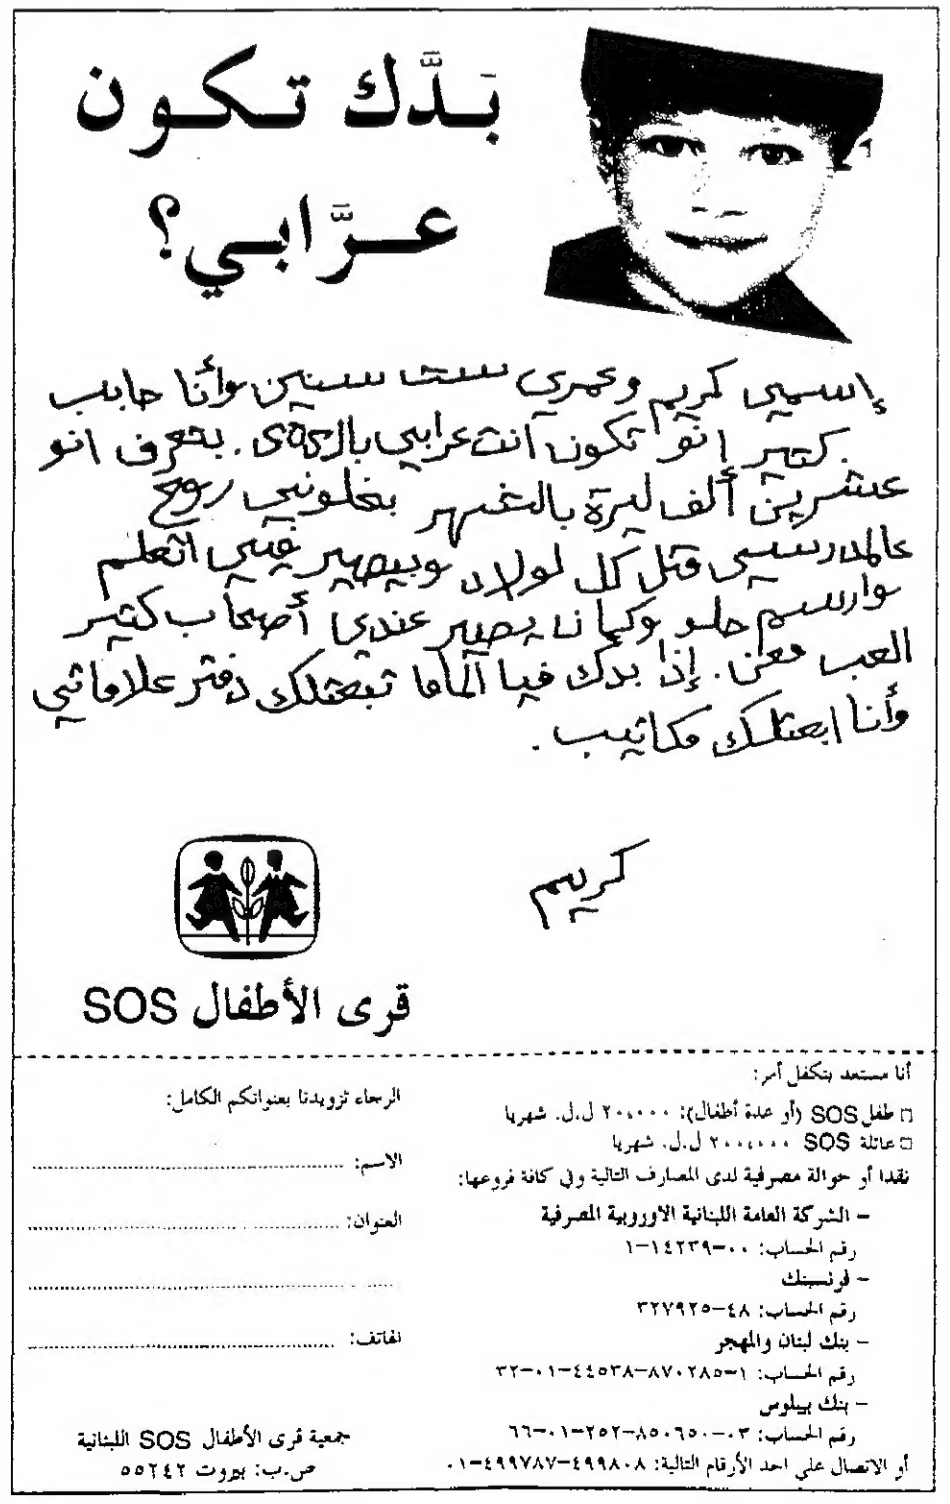 بَدَّك تكون
عرَّابي؟
إسمي كريم وعمري ست سنين وأنا حابب
كتير إنو تكون انت عرابي بالحكي. بعرف انو
عشرين ألف ليرة بالشهر بخلوني روح
عالمدرسي متل كل لولاد وبيصير فيي اتعلم
وارسم حلو وكمان يصير عندي أصحاب كتير
العب معن. إذا بدك فيا الماما تبعتلك دفتر علاماتي
وأنا ابعتلك مكاتيب.
كريم
قرى الأطفال SOS
أنا مستعد بتكفل أمر:
□ طفل SOS (أو عدة أطفال): ٢٠،٠٠٠ ل.ل. شهريا
□ عائلة SOS ٢٠٠،٠٠٠ ل.ل. شهريا
نقدا أو حوالة مصرفية لدى المصارف التالية وفي كافة فروعها:
– الشركة العامة اللبنانية الاوروبية المصرفية
رقم الحساب: ٠٠–١٤٢٣٩–١
– فرنسبنك
رقم الحساب: ٤٨–٣٢٧٩٢٥
– بنك لبنان والمهجر
رقم الحساب: ١–٨٧٠٢٨٥–٤٤٥٣٨–٠١–٣٢
– بنك بيبلوس
رقم الحساب: ٠٣–٨٥٠٦٥٠–٢٥٢–٠١–٦٦
أو الاتصال على احد الأرقام التالية: ٤٩٩٨٠٨–٤٩٩٧٨٧–٠١
الرجاء تزويدنا بعنوانكم الكامل:
الاسم:
العنوان:
الهاتف:
جمعية قرى الأطفال SOS اللبنانية
ص.ب: بيروت ٥٥٢٤٢